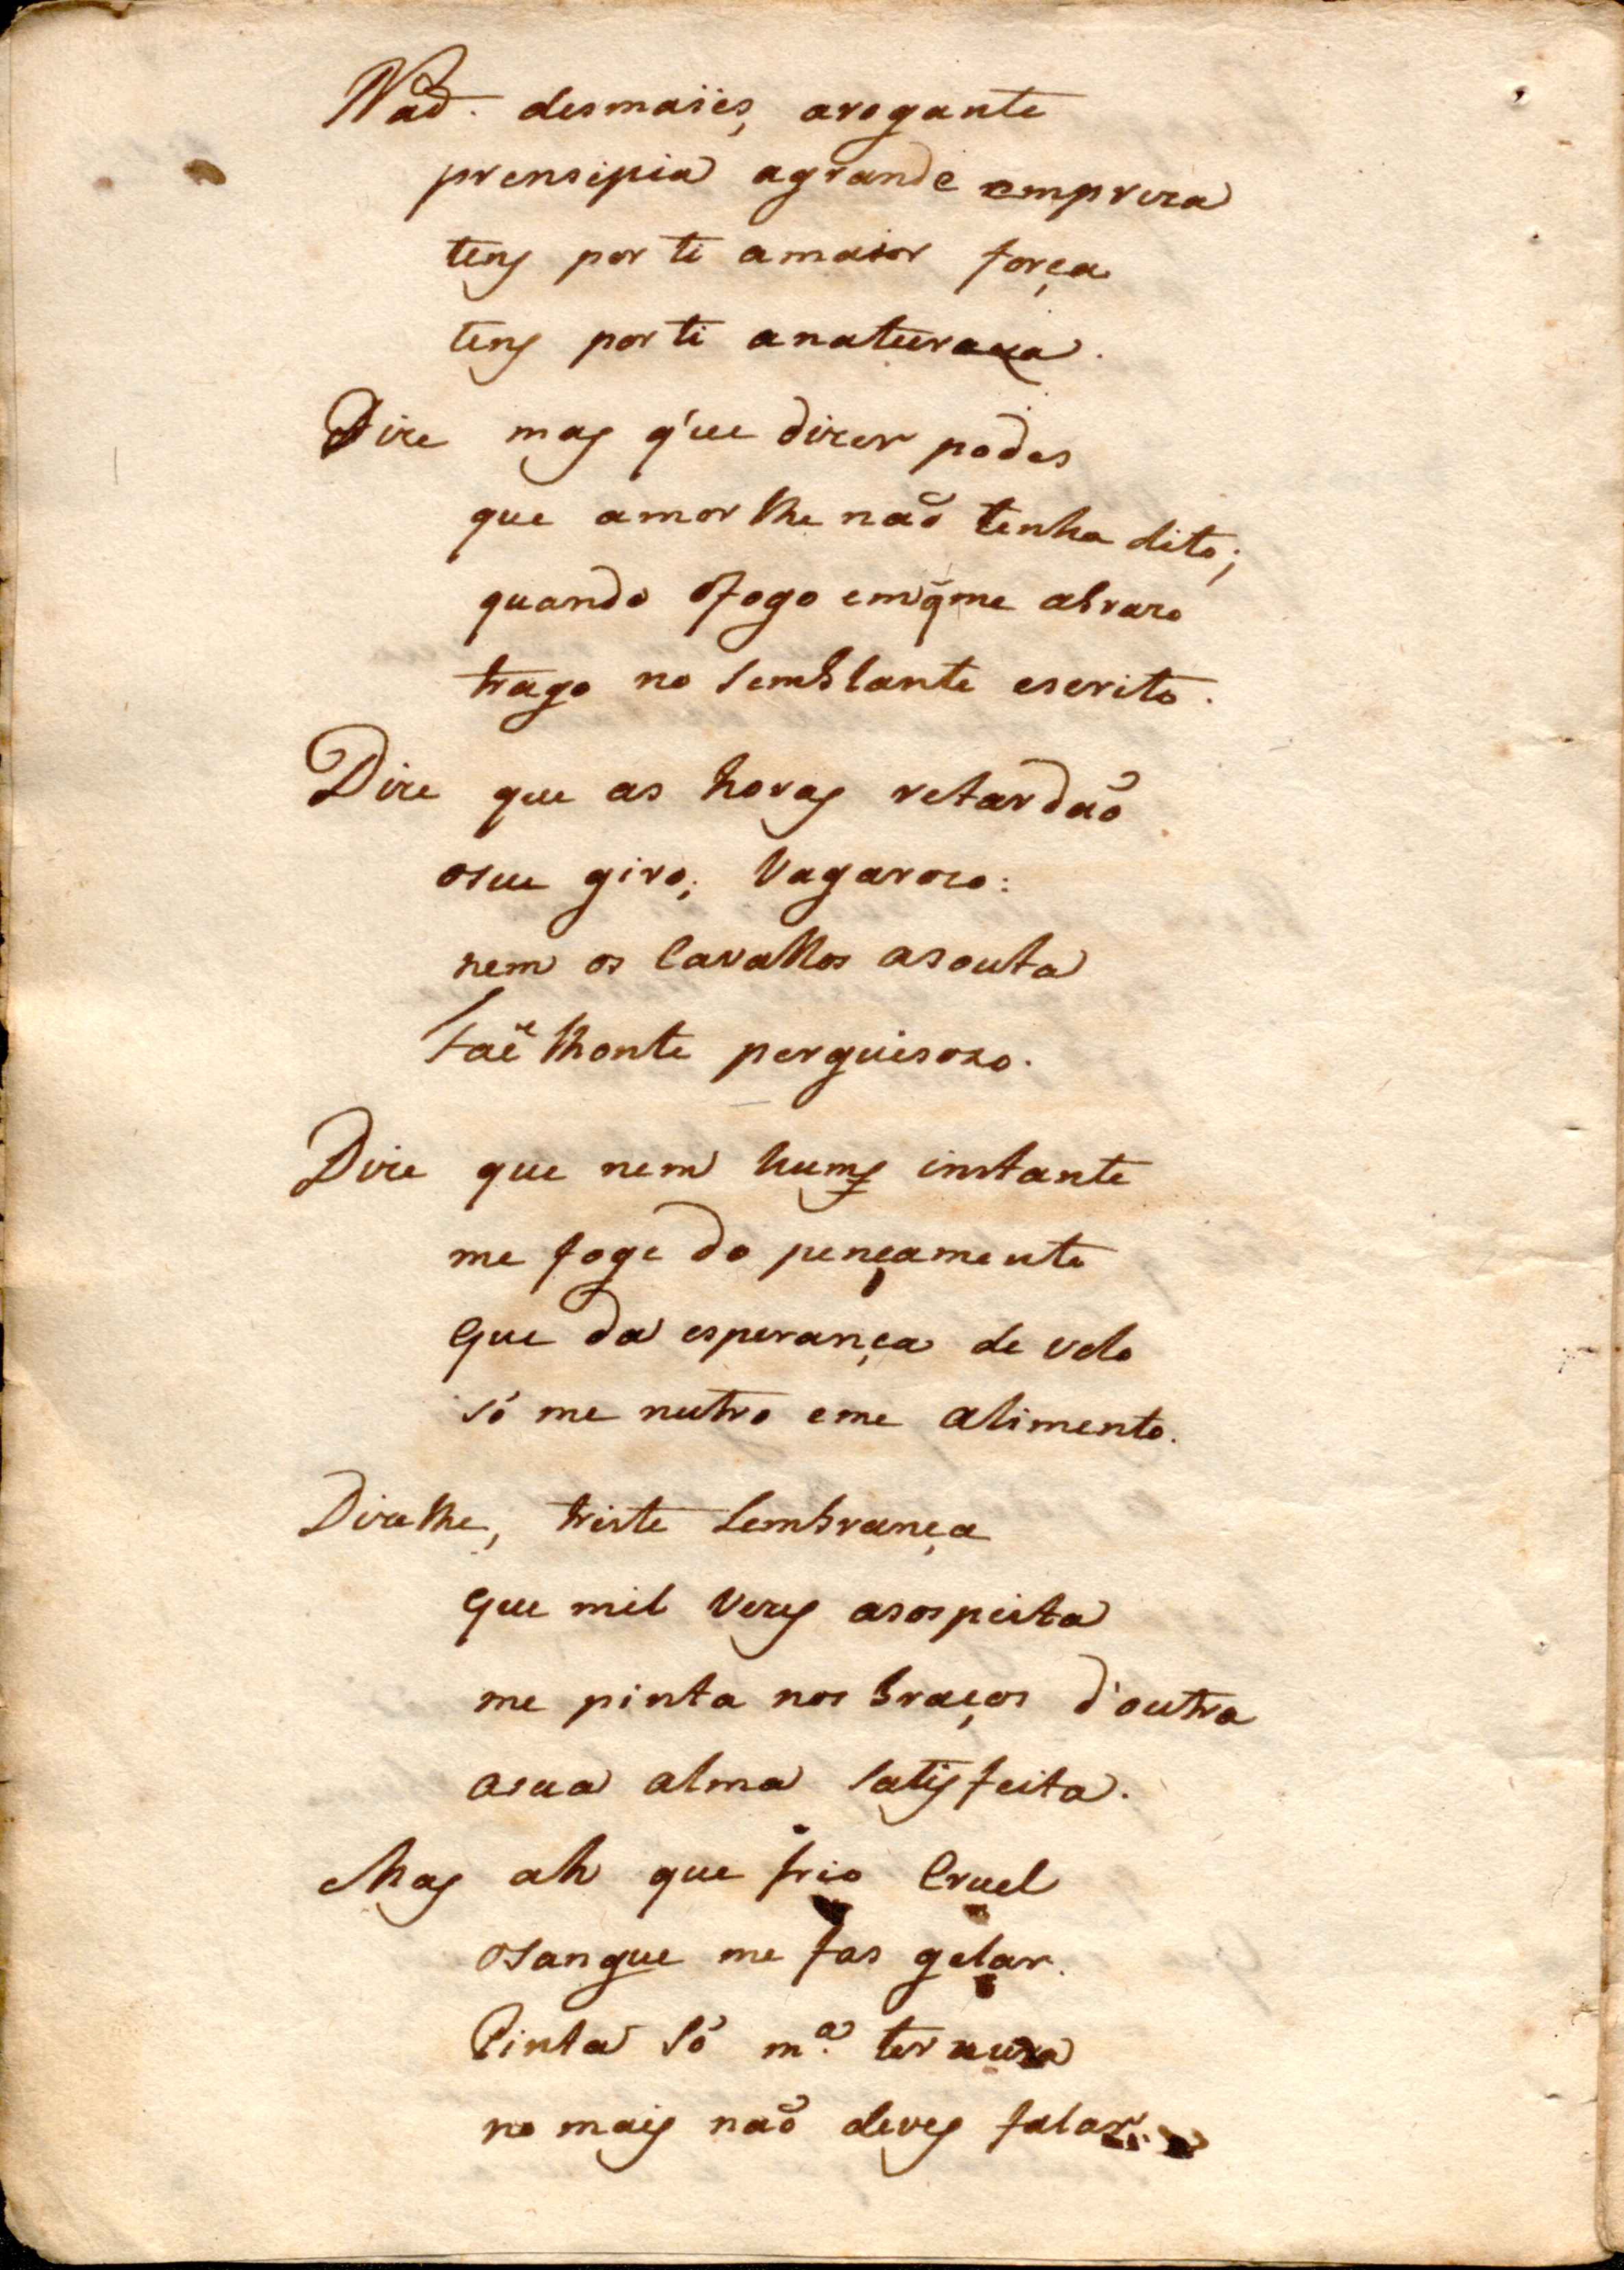 Não desmaies, arogante
prensipia agrande empreza
tens por ti amaior força
tens por ti anatureza.
Dize mas q'ue dizer podes
que amor lhe não tenha dito;
quando ofogo em q̃ me abrazo
trago no semblante escrito.
Dize que as horas retardão
oseu giro; Vagarozo:
nem os Cavallos asouta
Faêthonte perguisozo.
Dize que nem hums instante
me foge do pençamento
que da esperança de velo
só me nutro eme alimento.
Dizelhe, triste Lembrança
que mil vezes asospeita
me pinta nos braços d'outra
asua alma satisfeita.
Mas ah que frio Cruel
osangue me fas gelar.
Pinta só m.ª ternura
no mais não deves falar.